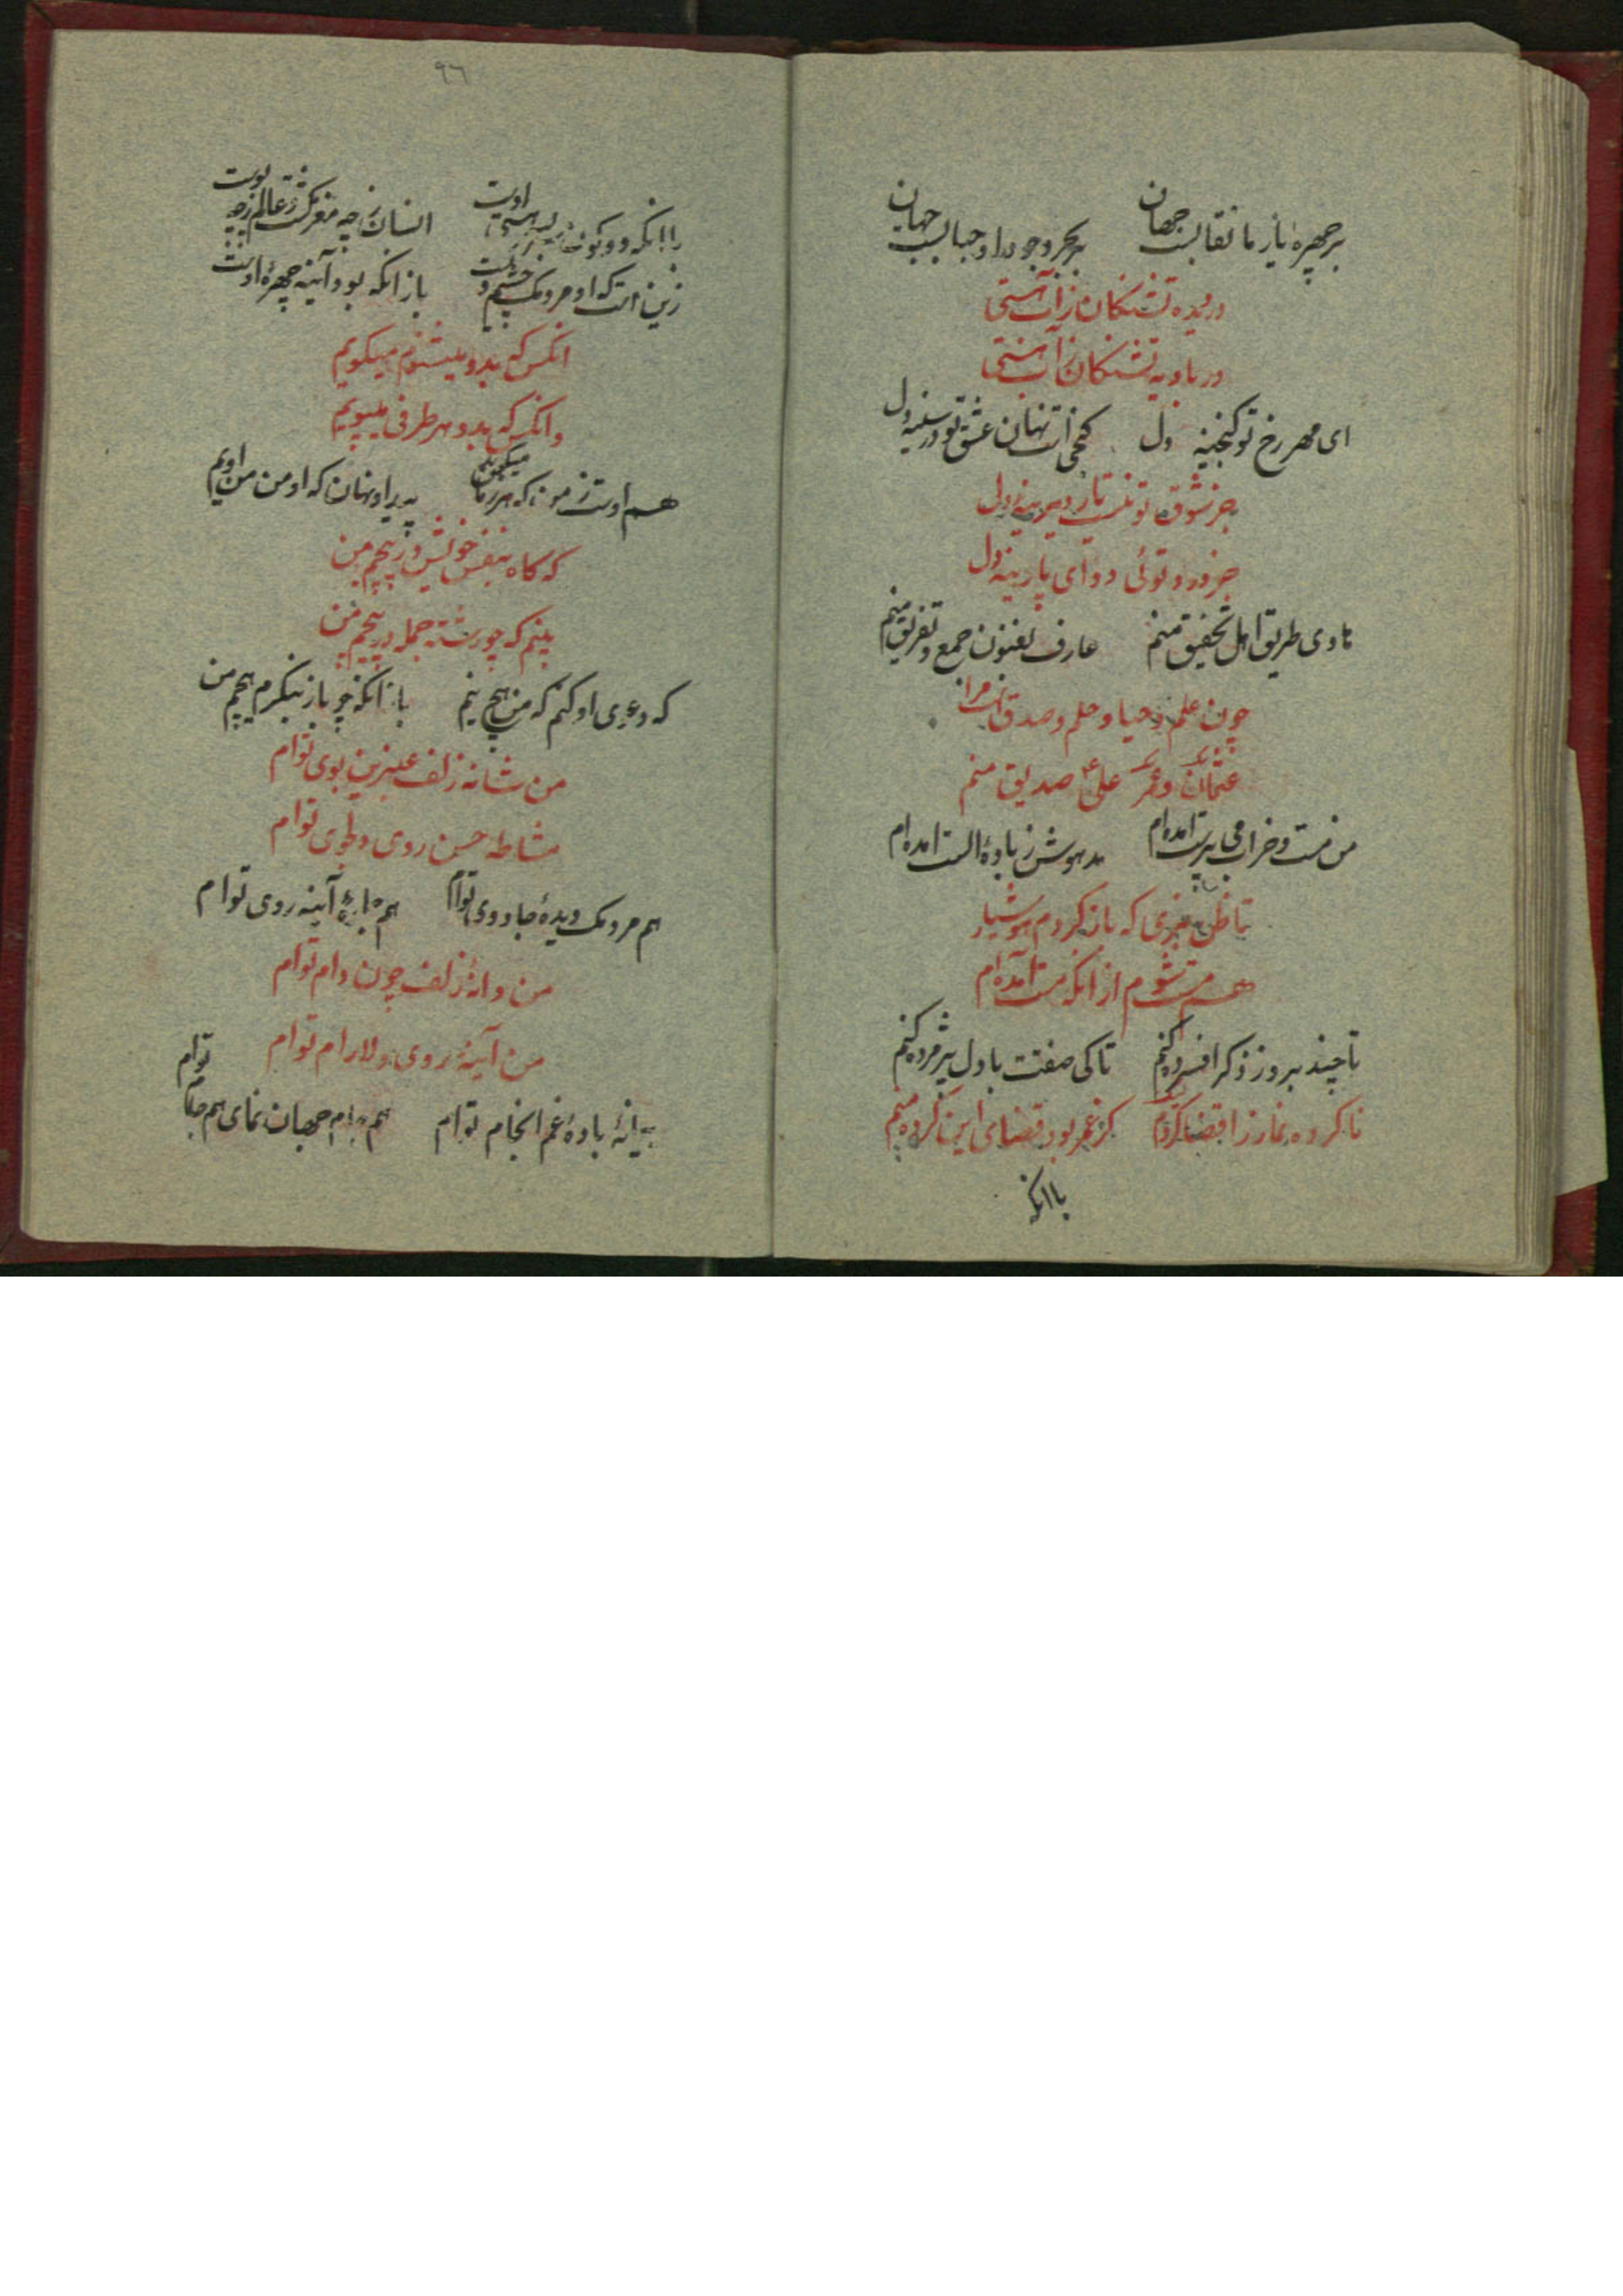 بر چهره یار ما نقابست جهان بر بحر وجود او حبابست جهان
در دیده تشنکان ز آب هستی
در بادیه تشنکان ز آب هستی
ای مهر رخ تو کنجینه دل کنجی است نهان عشق تو در سینه دل
جز شوق تو نیست یار دیرینه دل
جز درد تو ئی دوای پارینه دل
هادی طریق اهل تحقیق منم عارف بفنون جمع و تفریق منم
چون علم و حیا و حلم و صدقست مرا
عثمان و عمر علی صدیق منم
من مست و خراب می پرست امده ام مدهوش ز باده الست امده ام
تا ظن نبری که باز کردم هوشیار
هم مست شوم از انکه مست آمده ام
تا چند بروز ذکر افسرده کنم تا کی صفتت با دل پژمرده کنم
ناکرده نماز را قضا کردم کز عمر بود قضای این کرده منم
باانکه
۹۶
باانکه دو کون اوست انسان ز چه مغز کشت و عالم ز چه پوست
زین است که او مردمک چشم و باز انکه بود آینه چهرهٔ اوست
انکس که بدو میشنوم میکویم
وانکس که بدو هر طرفی میپویم
هم اوست ز من که هر زمان میکویم پیدا و نهان که او من و من اویم
که کاه بنفس خویش در پیچم من
بینم که چو رشته جمله در پیچم من
که دعوی او کنم که من هیچ نیم باز انکه چو باز بنکرم هیچم من
من شانه زلف عنبرین بوی توام
مشاطه حسن روی دلجوی توام
هم مردمک دیدهٔ جادوی توام هم آینه روی توام
من دانهٔ زلف چون دام توام
من آینهٔ روی دلارام توام
پیمانهٔ بادهٔ غم انجام توام هم جام جهان نمای هم جام توام